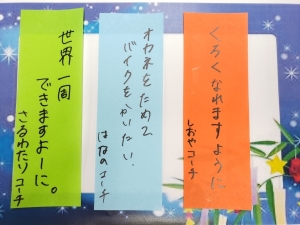 くろくなれますように
しおやコーチ
オカネをためて
バイクをかいたい.
はなのコーチ
世界一周
できますよーに。
さるわたりコーチ